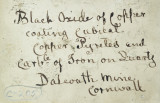 Black Oxide of Copper
coating Cubical
Copper Pyrites and
Carb. of Iron on Quartz
Dalcoath Mine
Cornwall